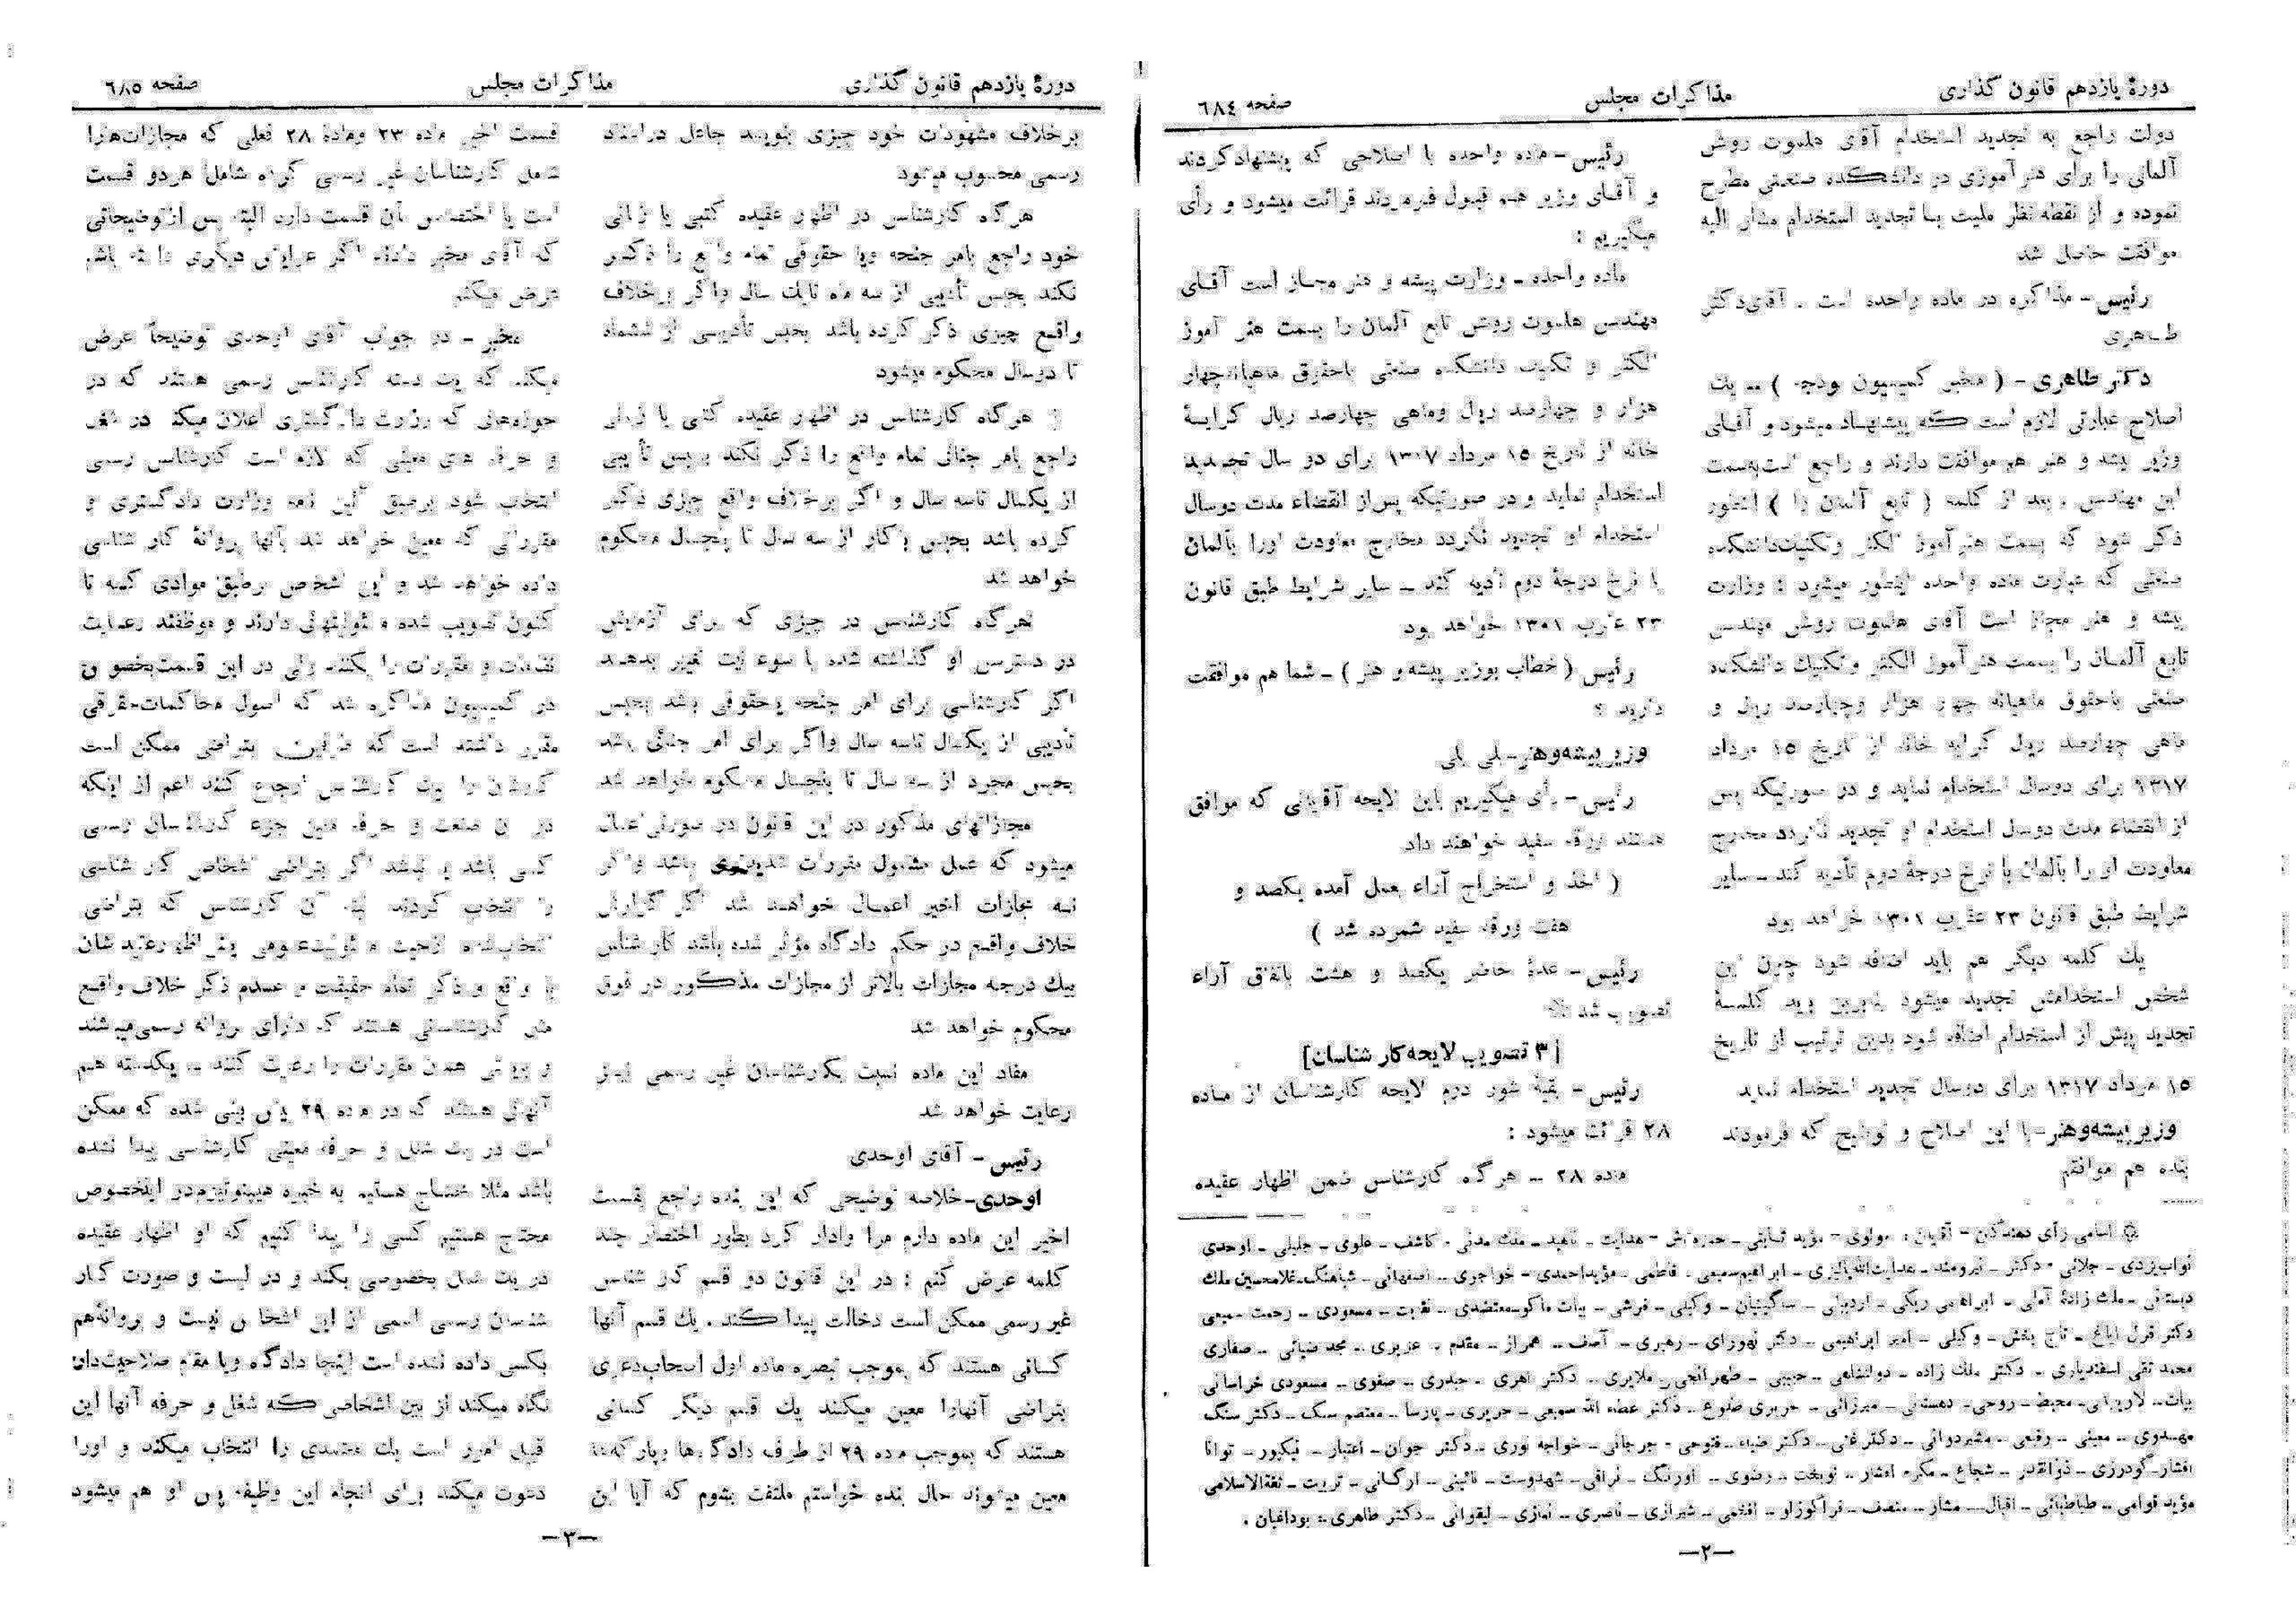 دورهٔ یازدهم قانون گذاری
مذاکرات مجلس
صفحه ٦٨٤
دولت راجع به تجدید استخدام آقای هلموت روش
آلمانی را برای هنرآموزی در دانشکده صنعتی مطرح
نموده و از نقطه نظر ملیت با تجدید استخدام مشار الیه
موافقت حاصل شد
رئیس - مذاکره در ماده واحده است . آقای دکتر
طاهری
دکتر طاهری - ( مخبر کمیسیون بودجه ) – یك
اصلاح عبارتی لازم است که پیشنهاد میشود و آقای
وزیر پیشه و هنر هم موافقت دارند و راجع است بسمت
این مهندس . بعد از کلمه ( تابع آلمان را ) اینطور
ذکر شود که بسمت هنرآموز الکتر وتکنیك دانشکده
صنعتی که عبارت ماده واحده اینطور میشود : وزارت
پیشه و هنر مجاز است آقای هلموت روش مهندس
تابع آلمان را بسمت هنرآموز الکتر وتکنیك دانشکده
صنعتی باحقوق ماهیانه چهار هزار وچهارصد ریال و
ماهی چهارصد ریال کرایه خانه از تاریخ ١٥ مرداد
١٣١٧ برای دوسال استخدام نماید و در صورتیکه پس
از انقضاء مدت دوسال استخدام او تجدید نگردد مخارج
معاودت او را بآلمان با نرخ درجهٔ دوم تأدیه کند – سایر
شرایط طبق قانون ٢٣ عقرب ١٣٠١ خواهد بود
یك کلمه دیگر هم باید اضافه شود چون این
شخص استخدامش تجدید میشود بنابرین باید کلمهٔ
تجدید پیش از استخدام اضافه شود بدین ترتیب از تاریخ
١٥ مرداد ١٣١٧ برای دوسال تجدید استخدام نماید
وزیر پیشه وهنر - با این اصلاح و توضیح که فرمودند
بنده هم موافقم
رئیس - ماده واحده با اصلاحی که پیشنهاد کردند
و آقای وزیر هم قبول فرمودند قرائت میشود و رأی
میگیریم :
ماده واحده - وزارت پیشه و هنر مجاز است آقای
مهندس هلموت روش تابع آلمان را بسمت هنر آموز
الکتر و تکنیك دانشکده صنعتی باحقوق ماهیانه چهار
هزار و چهارصد ریال وماهی چهارصد ریال کرایهٔ
خانه از تاریخ ١٥ مرداد ١٣٠٧ برای دو سال تجدید
استخدام نماید و در صورتیکه پس از انقضاء مدت دوسال
استخدام او تجدید نگردد مخارج معاودت اورا بآلمان
با نرخ درجهٔ دوم تأدیه کند – سایر شرایط طبق قانون
٢٣ عقرب ١٣٠١ خواهد بود
رئیس ( خطاب بوزیر پیشه و هنر ) – شما هم موافقت
دارید ؟
وزیر پیشه وهنر – بلی بلی
رئیس - رأی میگیریم باین لایحه آقایانی که موافق
هستند ورقه سفید خواهند داد
( اخذ و استخراج آراء بعمل آمده یکصد و
هفت ورقه سفید شمرده شد )
رئیس - عدهٔ حاضر یکصد و هشت باتفاق آراء
تصویب شد
[ ٣ تصویب لایحه کارشناسان ]
رئیس - بقیهٔ شور دوم لایحه کارشناسان از ماده
٢٨ قرائت میشود :
ماده ٢٨ – هرگاه کارشناس ضمن اظهار عقیده
اسامی رأی دهندگان - آقایان : مولوی - مؤید ثابتی - حمزه تاش - هدایت - ناهید - ملك مدنی - کاشف - علوی - جلیلی - اوحدی
نواب یزدی - جلائی - دکتر نیرومند - هدایت الله پالیزی - ابراهیم سمیعی - فاطمی - مؤید احمدی - خواجوی - اصفهانی - شباهنگ - غلامحسین ملك
دبستانی - ملك زادهٔ آملی - ابراهیمی ریگی - اردبیلی - ساگینیان - وکیلی - فرشی - بیات ماکو - معتضدی - نقابت - مسعودی - رحمت سمیعی
دکتر قزل ایاغ - تاج بخش - وکیلی - امیر ابراهیمی - دکتر نهورای - رهبری - آصف - همراز - مقدم - عزیزی - مجد ضیائی - صفاری
محمد تقی اسفندیاری - دکتر ملك زاده - دولتشاهی - حبیبی - طهرانچی - ملایری - دکتر اهری - حیدری - صفوی - مسعودی خراسانی
بیات - لاریجانی - محیط - روحی - دهستانی - میرزائی - حریری طلوع - دکتر عطاء الله سمیعی - حریری - پارسا - معتصم سنگ - دکتر سنگ
مهدوی - معینی - رفیعی - مشیردوانی - دکتر غنی - دکتر ضیاء - فتوحی - جرجانی - خواجه نوری - دکتر جوان - اعتبار - نیکپور - توانا
افشار - گودرزی - ذوالقدر - شجاع - مکرم افشار - نوبخت - رضوی - اورنگ - نراقی - شهدوست - نائینی - ارگانی - تربیت - ثقة الاسلامی
مؤید قوامی - طباطبائی - اقبال - مشار - منصف - قراگوزلو - افخمی - شیرازی - ناصری - نمازی - لیقوانی - دکتر طاهری - بوداغیان .
—٢—
دورهٔ یازدهم قانون گذاری
مذاکرات مجلس
صفحه ٦٨٥
برخلاف مشهودات خود چیزی بنویسد جاعل در اسناد
رسمی محسوب میشود
هرگاه کارشناس در اظهار عقیده کتبی یا زبانی
خود راجع بامر جنحه ویا حقوقی تمام واقع را ذکر
نکند بحبس تأدیبی از سه ماه تا یك سال واگر برخلاف
واقع چیزی ذکر کرده باشد بحبس تأدیبی از ششماه
تا دوسال محکوم میشود
هرگاه کارشناس در اظهار عقیده کتبی یا زبانی
راجع بامر جنائی تمام واقع را ذکر نکند بحبس تأدیبی
از یکسال تاسه سال و اگر برخلاف واقع چیزی ذکر
کرده باشد بحبس باکار از سه سال تا پنجسال محکوم
خواهد شد
هرگاه کارشناس در چیزی که برای آزمایش
در دسترس او گذاشته شده با سوء نیت تغییر بدهد
اگر کارشناسی برای امر جنحه یاحقوقی باشد بحبس
تأدیبی از یکسال تاسه سال واگر برای امر جنائی باشد
بحبس مجرد از سه سال تا پنجسال محکوم خواهد شد
مجازاتهای مذکور در این قانون در صورتی اعمال
میشود که عمل مشمول مقررات شدیدتری نباشد والا
به مجازات اخیر اعمال خواهد شد اگر گزارش
خلاف واقع در حکم دادگاه مؤثر شده باشد کارشناس
بیك درجه مجازات بالاتر از مجازات مذکور در فوق
محکوم خواهد شد
مفاد این ماده نسبت بکارشناسان غیر رسمی نیز
رعایت خواهد شد
رئیس - آقای اوحدی
اوحدی - خلاصه توضیحی که این بنده راجع بقسمت
اخیر این ماده دارم مرا وادار کرد بطور اختصار چند
کلمه عرض کنم : در این قانون دو قسم کارشناس
غیر رسمی ممکن است دخالت پیدا کند . یك قسم آنها
کسانی هستند که بموجب تبصره ماده اول اصحاب دعوی
بتراضی آنهارا معین میکنند یك قسم دیگر کسانی
هستند که بموجب ماده ٢٩ از طرف دادگاهها و پارکه‌ها
معین میشوند حال بنده خواستم ملتفت بشوم که آیا این
قسمت اخیر ماده ٢٣ وماده ٢٨ فعلی که مجازات‌ها را
شامل کارشناسان غیر رسمی کرده شامل هردو قسمت
است یا اختصاص بآن قسمت دارد البته پس از توضیحاتی
که آقای مخبر دادند اگر عرایض دیگری داشته باشم
عرض میکنم
مخبر - در جواب آقای اوحدی توضیحاً عرض
میکنم که یك دسته کارشناس رسمی هستند که در
حوزه‌هائی که وزارت دادگستری اعلان میکند در شغل
و حرفه های معینی که لازم است کارشناس رسمی
انتخاب شود برطبق آئین نامه وزارت دادگستری و
مقرراتی که معین خواهد شد بآنها پروانهٔ کارشناسی
داده خواهد شد و این اشخاص برطبق موادی که تا
کنون تصویب شده مسئولیتهائی دارند و موظفند رعایت
نظامات و مقررات را بکنند ولی در این قسمت بخصوص
در کمیسیون مذاکره شد که اصول محاکمات حقوقی
مقرر داشته است که طرفین بتراضی ممکن است
کارشان را بیك کارشناس ارجاع کنند اعم از اینکه
در آن صنعت و حرفه معین جزء کارشناسان رسمی
کسی باشد یا نباشد اگر بتراضی اشخاص کارشناسی
را انتخاب کردند البته آن کارشناس که بتراضی
انتخاب شده ازحیث مسئولیت عمومی یعنی اظهار عقیده شان
با واقع و ذکر تمام حقیقت و عدم ذکر خلاف واقع
مثل کارشناسانی هستند که دارای پروانه رسمی میباشند
و بایستی همان مقررات را رعایت کنند – یکدسته هم
آنهائی هستند که در ماده ٢٩ پیش بینی شده که ممکن
است در یك شغل و حرفه معینی کارشناسی پیدا نشده
باشد مثلا محتاج هستیم به خبره هیپنوتیزم در اینخصوص
محتاج هستیم کسی را پیدا کنیم که او اظهار عقیده
در یك عمل بخصوصی بکند و در لیست و صورت کار
شناسان رسمی اسمی از این اشخاص نیست و پروانه هم
بکسی داده نشده است اینجا دادگاه ویا مقام صلاحیت‌دار
نگاه میکند از بین اشخاصی که شغل و حرفه آنها این
قبیل امور است یك معتمدی را انتخاب میکند و اورا
دعوت میکند برای انجام این وظیفه پس او هم میشود
—٣—